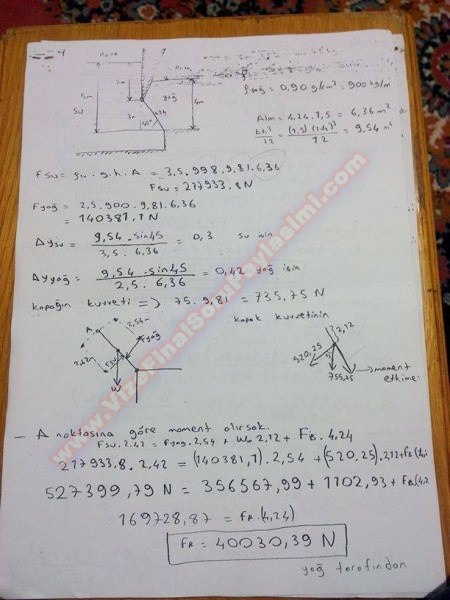 5m
2m
yağ
4m
su
3m
4,24
45°
ρyağ = 0,90 g/cm³ = 900 kg/m
Alan = 4,24.1,5 = 6,36 m²
b.h³/12 = (1,5)(4,24)³/12 = 9,54 m⁴
Fsu = ρsu . g . h . A = 3,5.998.9,81.6,36
Fsu = 217933,8 N
Fyağ = 2,5.900.9,81.6,36
= 140381,1 N
Δysu = 9,54 . sin45 / 3,5 . 6,36 = 0,3 su için
Δyyağ = 9,54 . sin45 / 2,5 . 6,36 = 0,42 yağ için
kapağın kuvveti => 75.9,81 = 735,75 N
A
2,54m
Fyağ
2,42m
Fsu
W
kapak kuvvetinin
2,12
520,25
735,75
moment etkime
— A noktasına göre moment alırsak.
Fsu.2,42 = Fyağ.2,54 + W.2,12 + FB.4,24
217933,8 . 2,42 = (140381,1) . 2,54 + (520,25).2,12+FB
527399,79 N = 356567,99 + 1102,93 + FB.(4,2
169728,87 = FB.(4,24)
FB = 40030,39 N
yağ tarafından
www.VizeFinalSoruPaylasimi.com